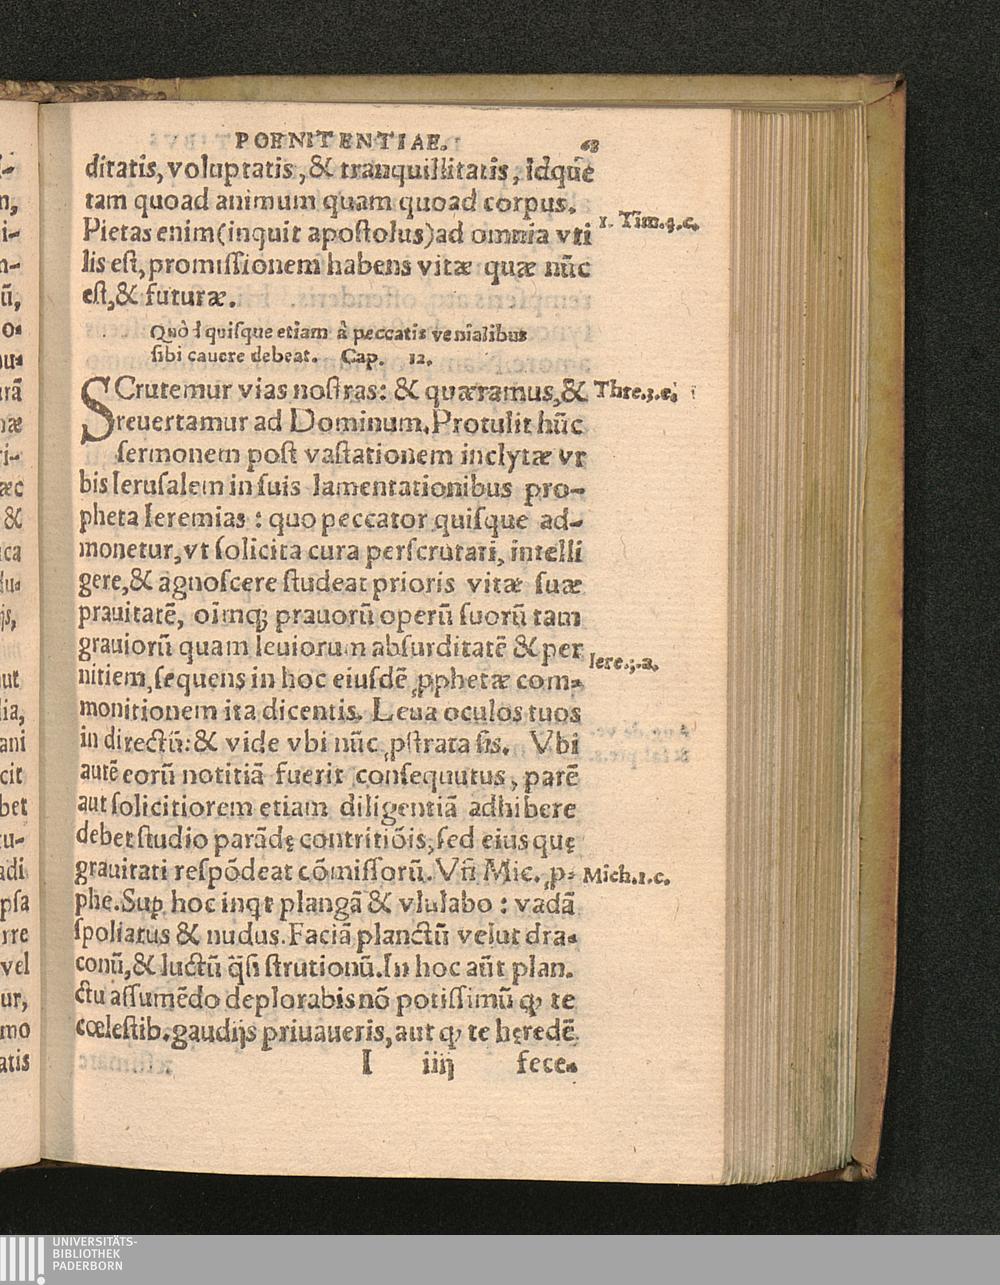 POENITENTIAE. 68
ditatis, voluptatis, & tranquillitatis, idquē
tam quoad animum quam quoad corpus.
1. Tim.4.c.
Pietas enim (inquit apoſtolus) ad omnia vti
lis eſt, promiſſionem habens vitæ quæ nūc
eſt, & futuræ.
Quòd quiſque etiam à peccatis venialibus
ſibi cauere debeat. Cap. 12.
SCrutemur vias noſtras: & quæramus, &
Thre.3.e.
reuertamur ad Dominum. Protulit hūc
ſermonem poſt vaſtationem inclytæ vr
bis Ieruſalem in ſuis lamentationibus pro-
pheta Ieremias : quo peccator quiſque ad-
monetur, vt ſolicita cura perſcrutari, intelli
gere, & agnoſcere ſtudeat prioris vitæ ſuæ
prauitatē, oīmq; prauorū operū ſuorū tam
grauiorū quam leuiorum abſurditatē & per
Iere.3.a.
nitiem, ſequens in hoc eiuſdē ꝓphetæ com-
monitionem ita dicentis. Leua oculos tuos
in directū: & vide vbi nūc ꝓſtrata ſis. Vbi
autē eorū notitiā fuerit conſequutus, parē
aut ſolicitiorem etiam diligentiā adhibere
debet ſtudio parādę contritiōis, ſed eius quę
grauitati reſpōdeat cōmiſſorū. Vñ Mic. ꝓ-
Mich.1.c.
phe. Suꝑ hoc inqt plangā & vlulabo : vadā
ſpoliatus & nudus. Faciā planctū velut dra-
conū, & luctū q̄ſi ſtrutionū. In hoc aūt plan.
ctu aſſumēdo deplorabis nō potiſſimū ꝙ te
cœleſtib. gaudijs priuaueris, aut ꝙ te hęredē
I iiij fece-
UNIVERSITÄTS-
BIBLIOTHEK
PADERBORN